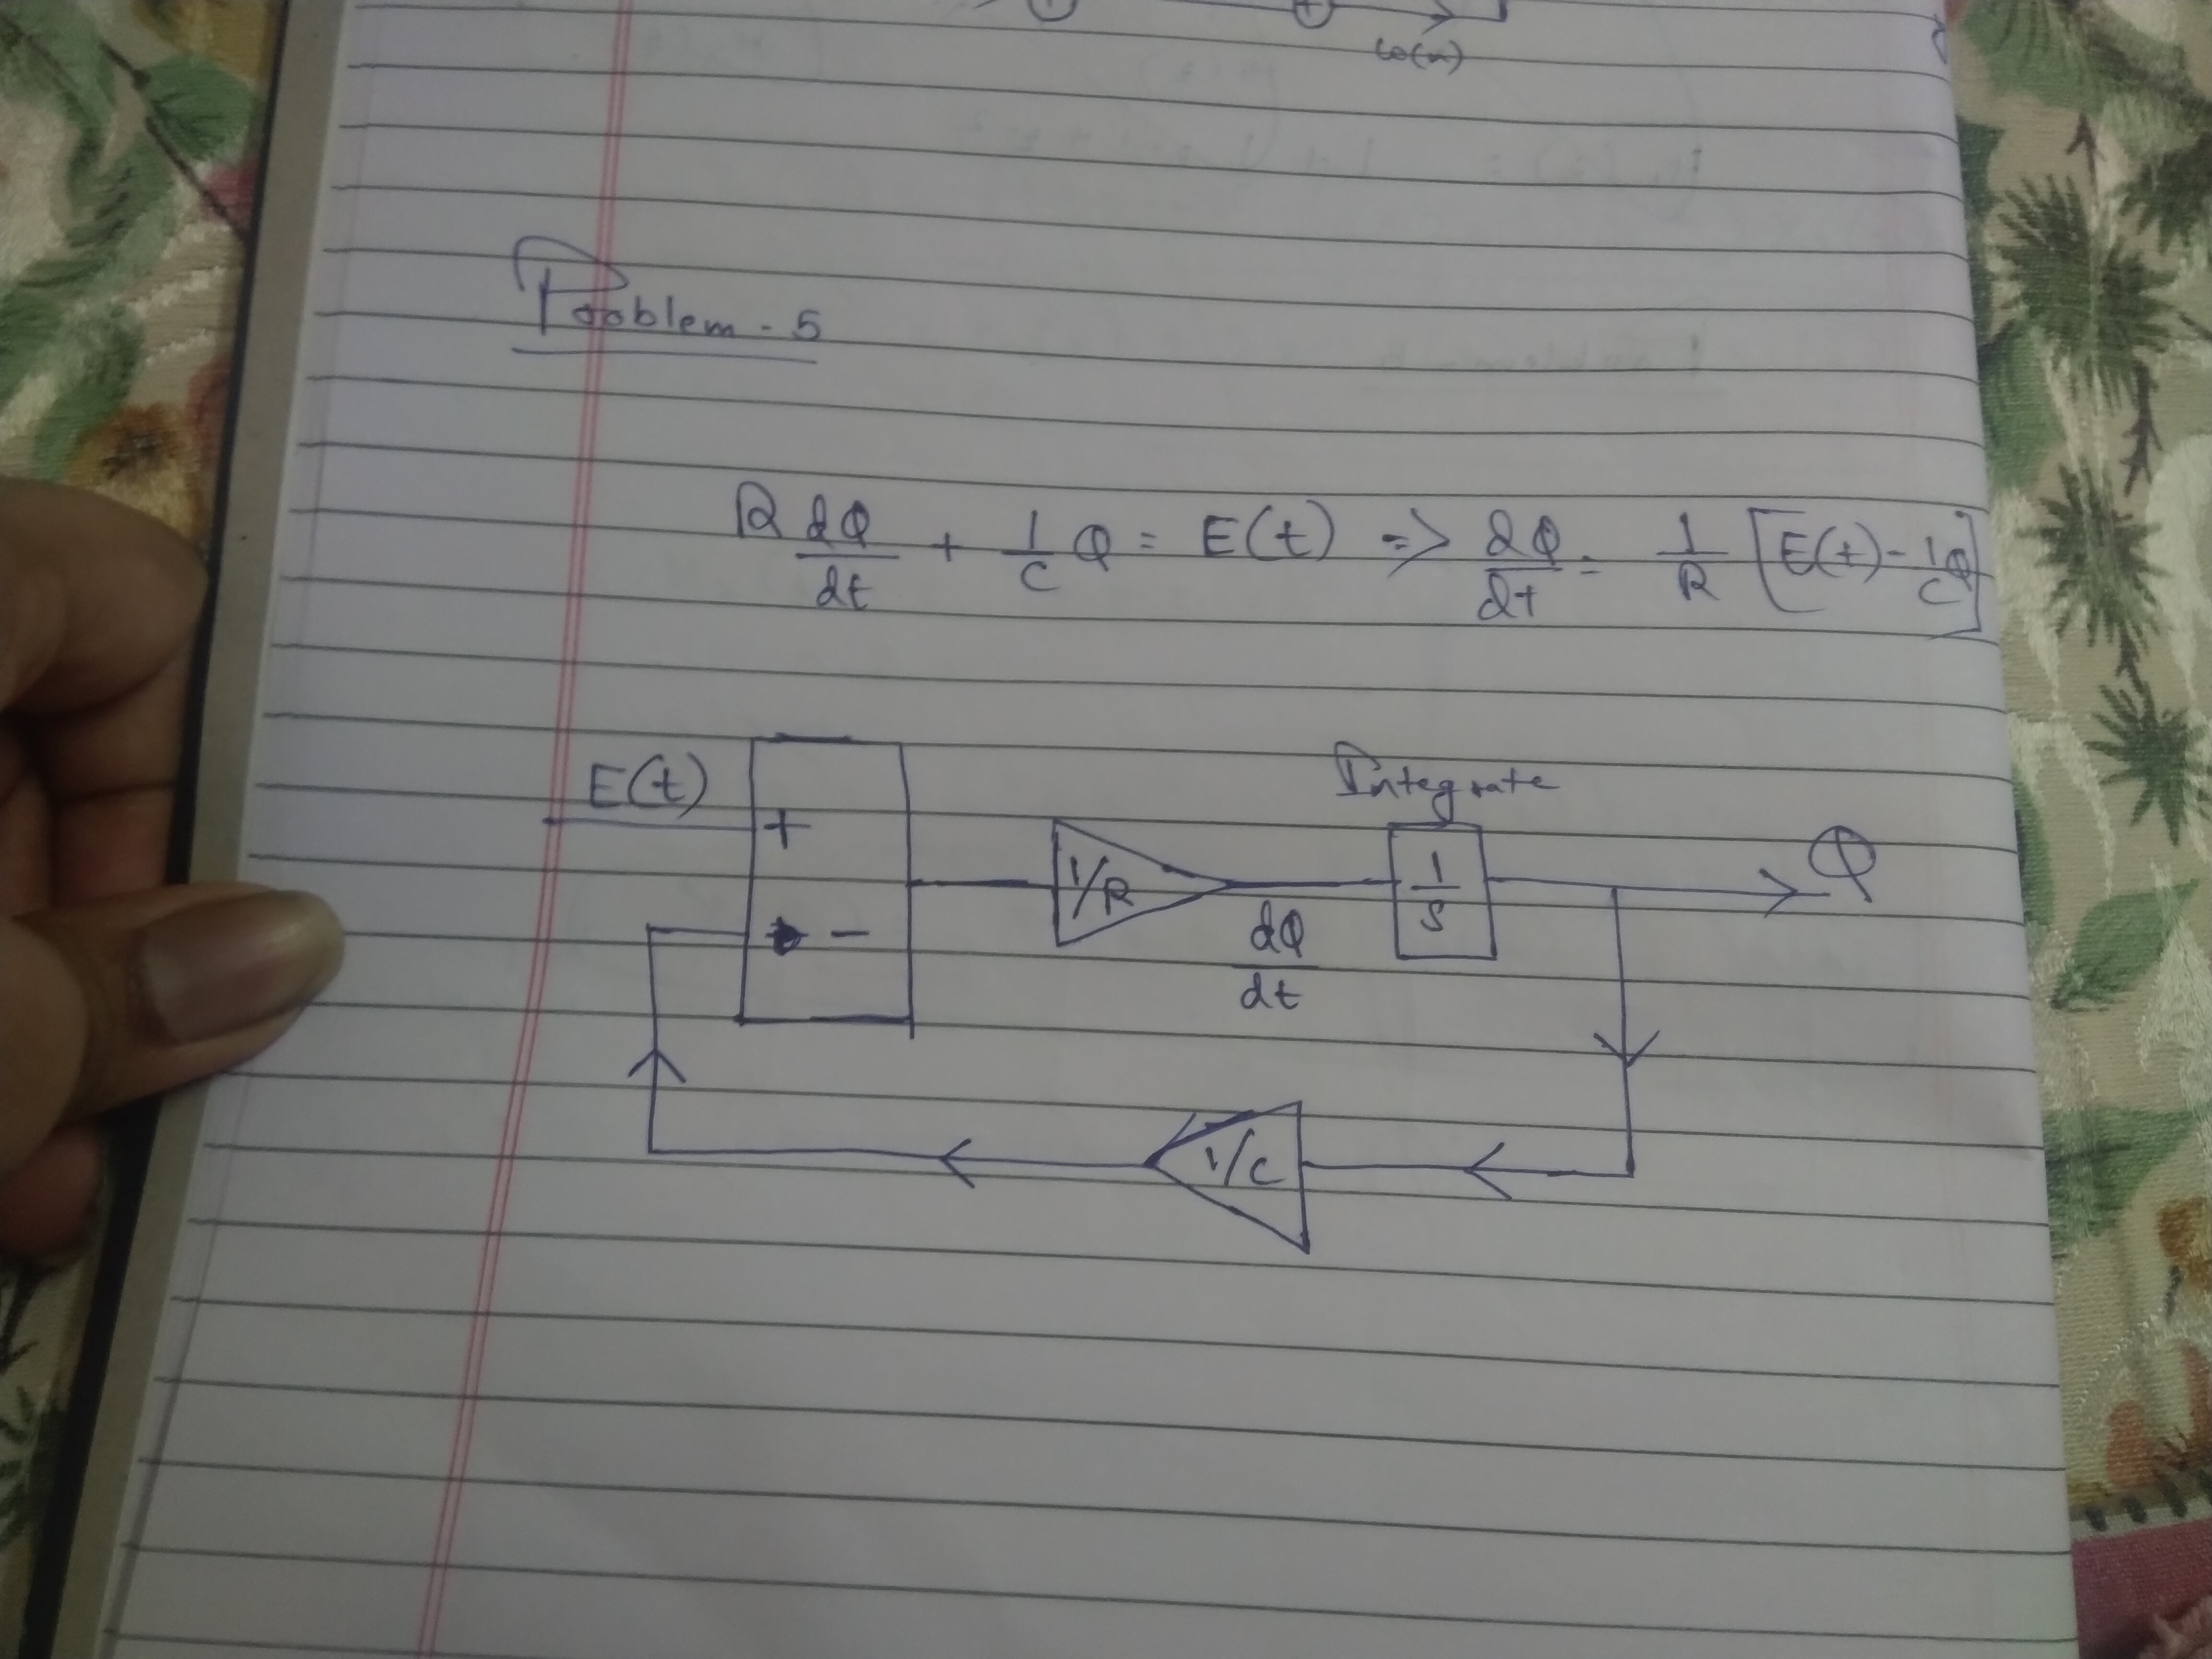 ω(n)
Problem - 5
R dQ/dt + 1/C Q = E(t) => dQ/dt = 1/R [E(t) - 1/C Q]
E(t)
Integrate
+
1/R
1/S
Q
-
dQ/dt
1/C